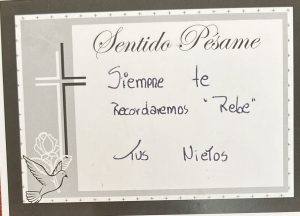 Sentido Pésame
Siempre te
Recordaremos "Rebe"
Tus Nietos